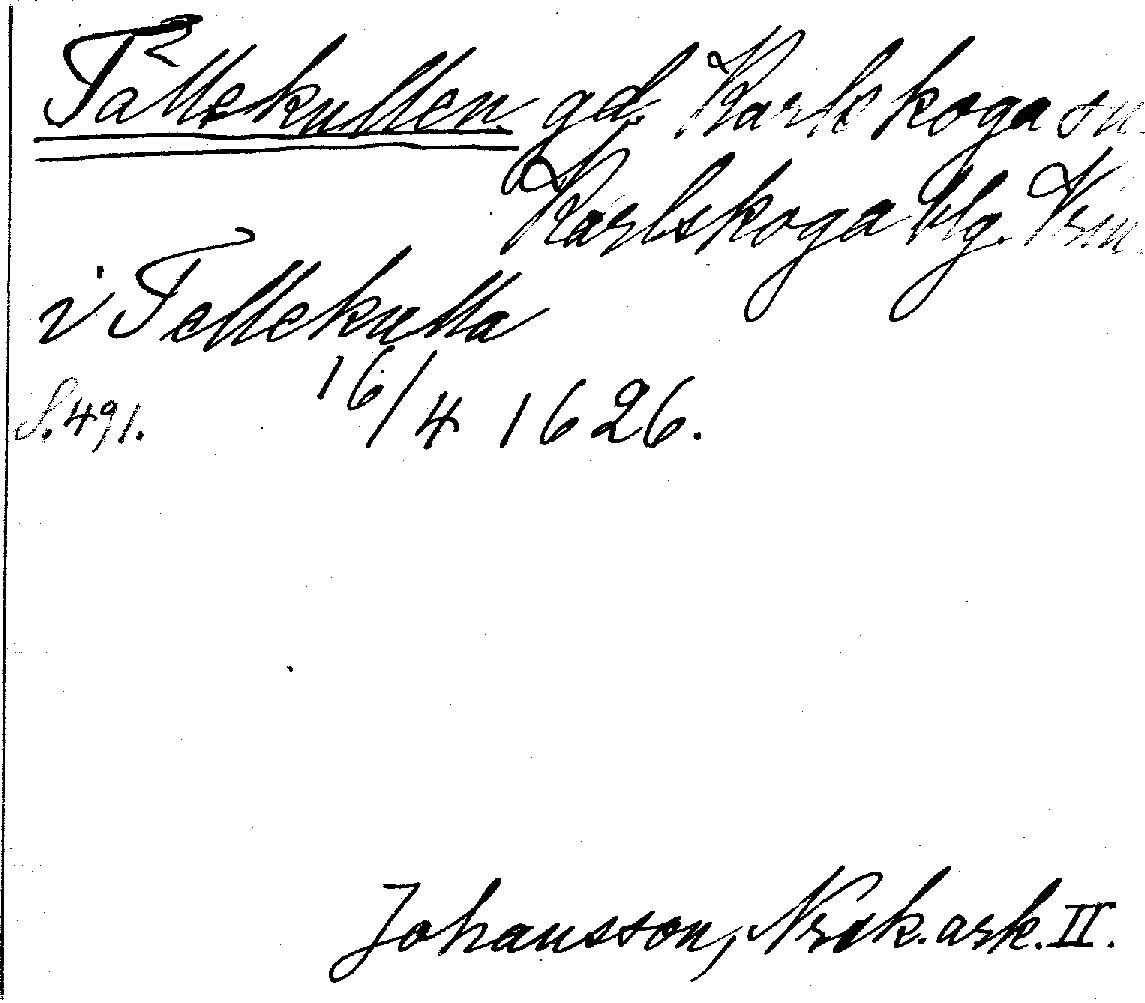 Tällekullen gd. Karlskoga sn
Karlskoga blg. Vrm.
i Tellekulla
S. 491. 16/4 1626.
Johansson, Nrsk. ark. II.